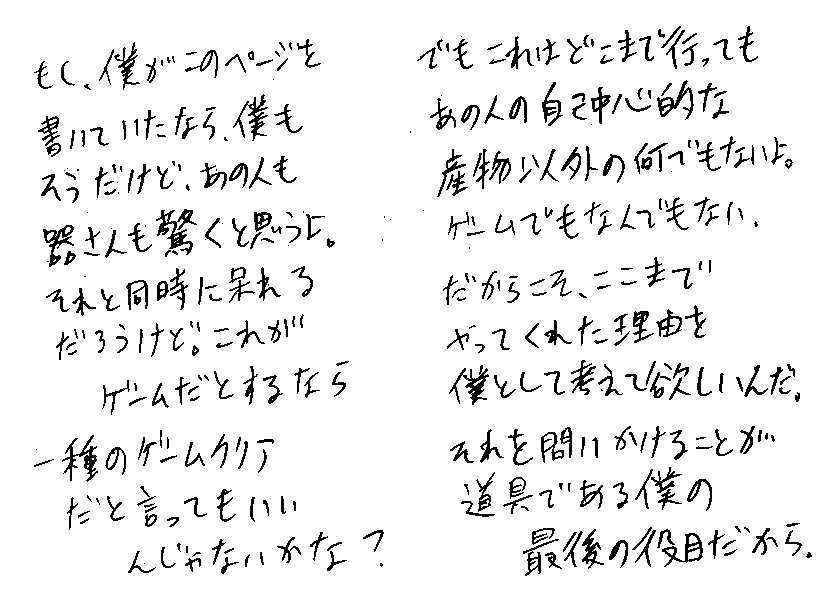 もし、僕がこのページを
書いていたなら、僕も
そうだけど、あの人も
器さんも驚くと思うよ。
それと同時に呆れる
だろうけど。これが
ゲームだとするなら
一種のゲームクリア
だと言ってもいい
んじゃないかな？
でもこれはどこまで行っても
あの人の自己中心的な
産物以外の何でもないよ。
ゲームでもなんでもない、
だからこそ、ここまで
やってくれた理由を
僕として考えて欲しいんだ。
それを問いかけることが
道具である僕の
最後の役目だから。